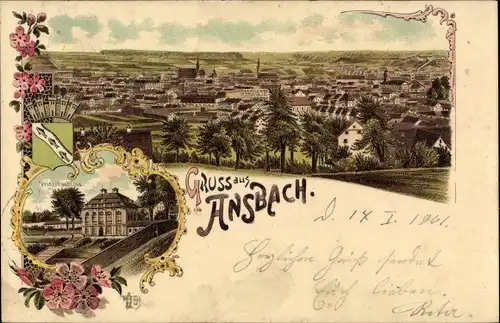 GRUSS aus
ANSBACH.
d. 17 I. 1901.
Herzlichen Gruß sendet
Euch lieben